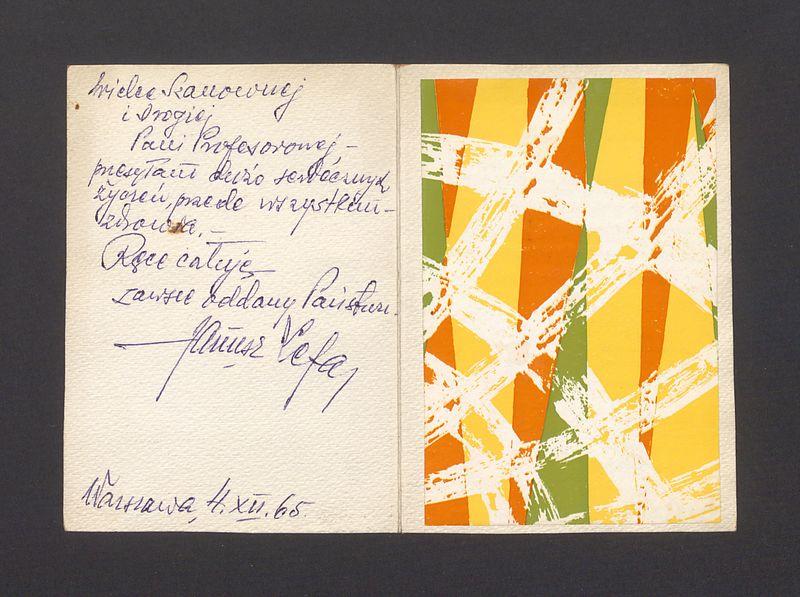 Wielce Szanownej
i Drogiej
Pani Profesorowej –
przesyłam dużo serdecznych
życzeń, przede wszystkim –
zdrowia. –
Ręce całuję
zawsze oddany Państwu.
Janusz
Warszawa, 4.XII.65.